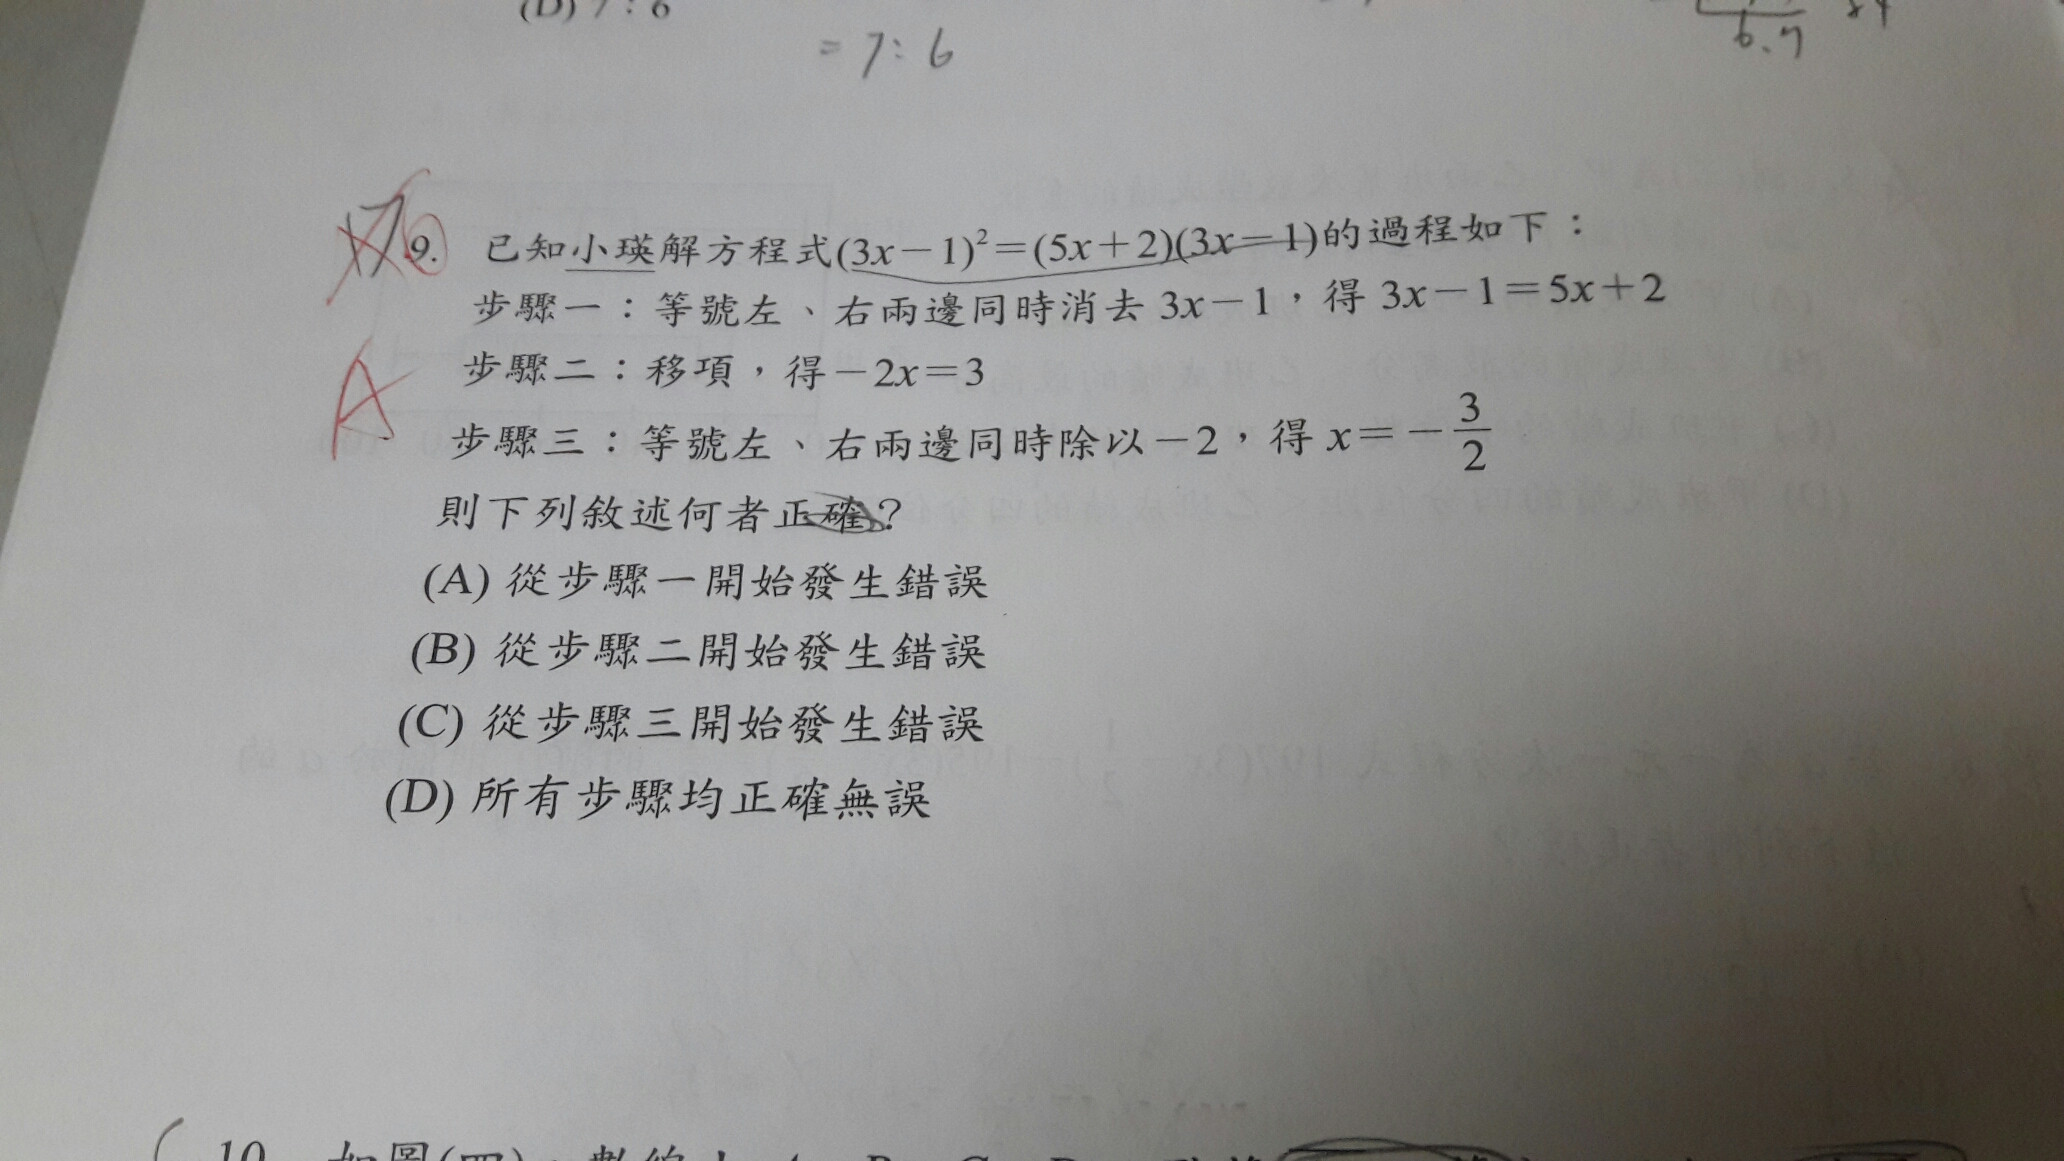 (D) 7：6
= 7：6
6.7
9. 已知小瑛解方程式(3x－1)²＝(5x＋2)(3x－1)的過程如下：
步驟一：等號左、右兩邊同時消去 3x－1，得 3x－1＝5x＋2
步驟二：移項，得－2x＝3
A
步驟三：等號左、右兩邊同時除以－2，得 x＝－3/2
則下列敘述何者正確？
(A) 從步驟一開始發生錯誤
(B) 從步驟二開始發生錯誤
(C) 從步驟三開始發生錯誤
(D) 所有步驟均正確無誤
10. 如圖(四)，數線上